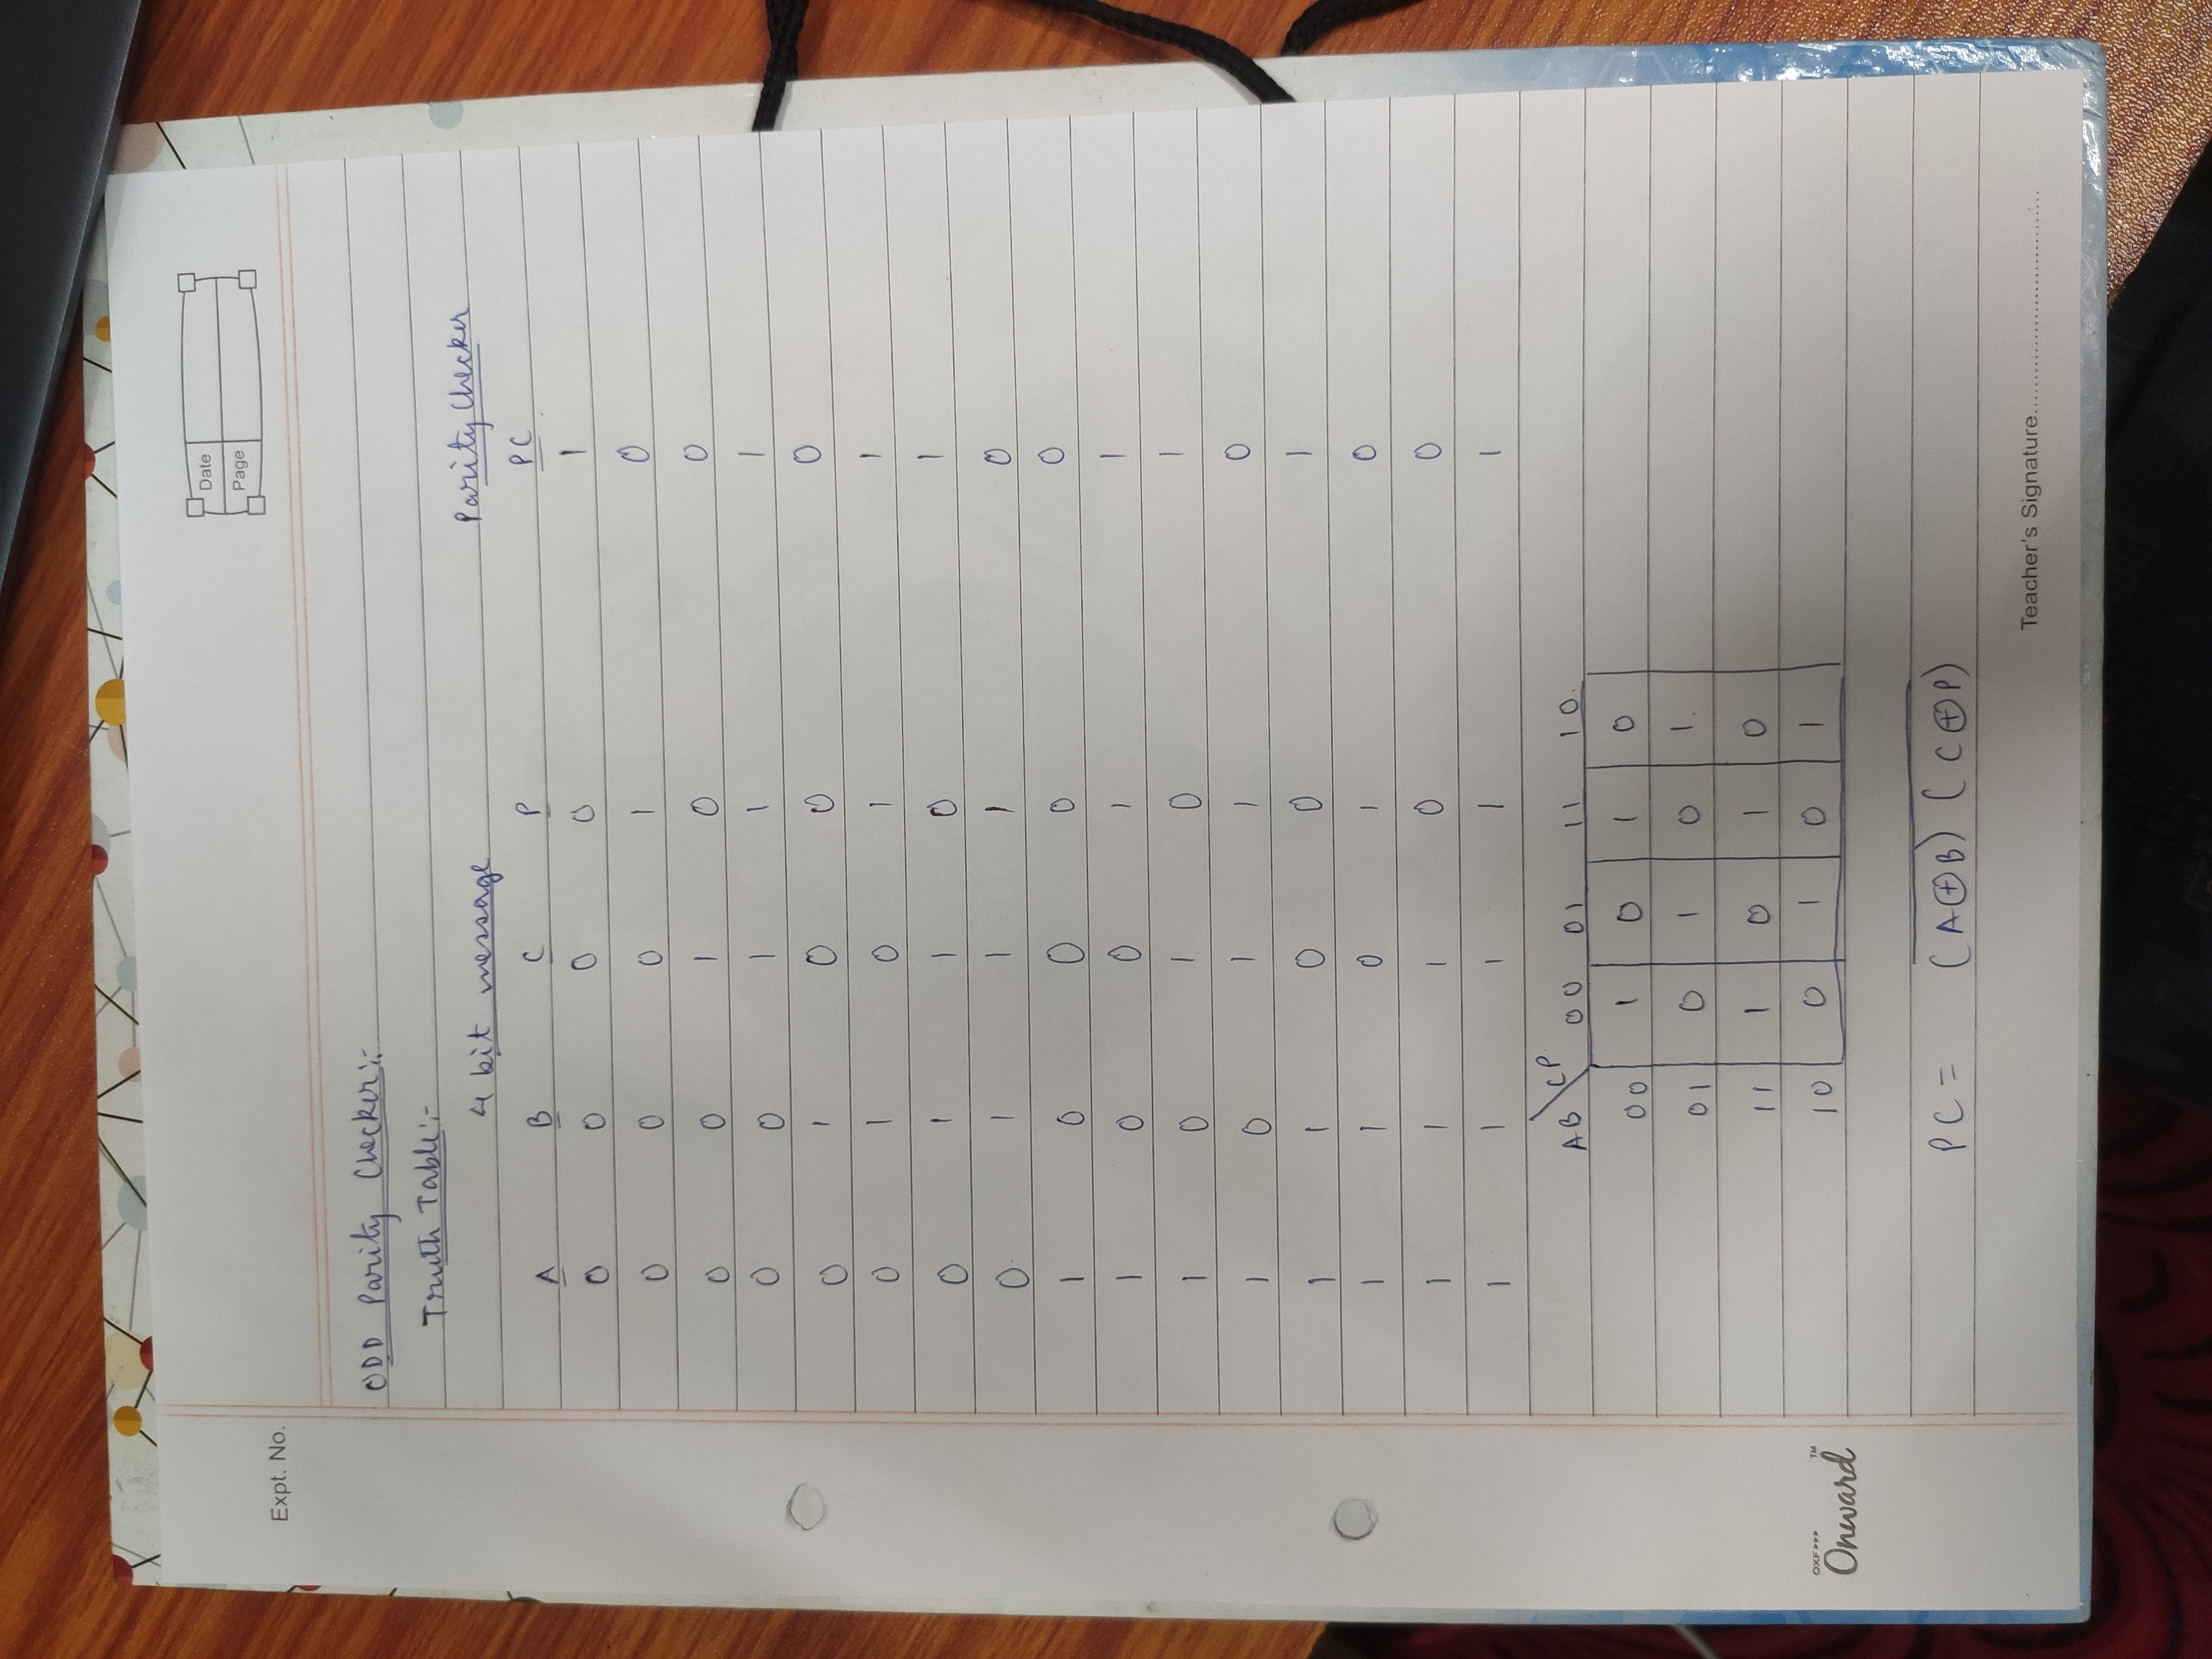 Date
Page
Expt. No.
ODD Parity Checker:-
Truth Table:-
4 bit message Parity Checker
A B C P PC
0 0 0 0 1
0 0 0 1 0
0 0 1 0 0
0 0 1 1 1
0 1 0 0 0
0 1 0 1 1
0 1 1 0 1
0 1 1 1 0
1 0 0 0 0
1 0 0 1 1
1 0 1 0 1
1 0 1 1 0
1 1 0 0 1
1 1 0 1 0
1 1 1 0 0
1 1 1 1 1
AB \ CP 00 01 11 10
00 1 0 1 0
01 0 1 0 1
11 1 0 1 0
10 0 1 0 1
OXF▸▸▸ ™
Onward
PC = \overline{(A⊕B) (C⊕P)}
Teacher's Signature................................